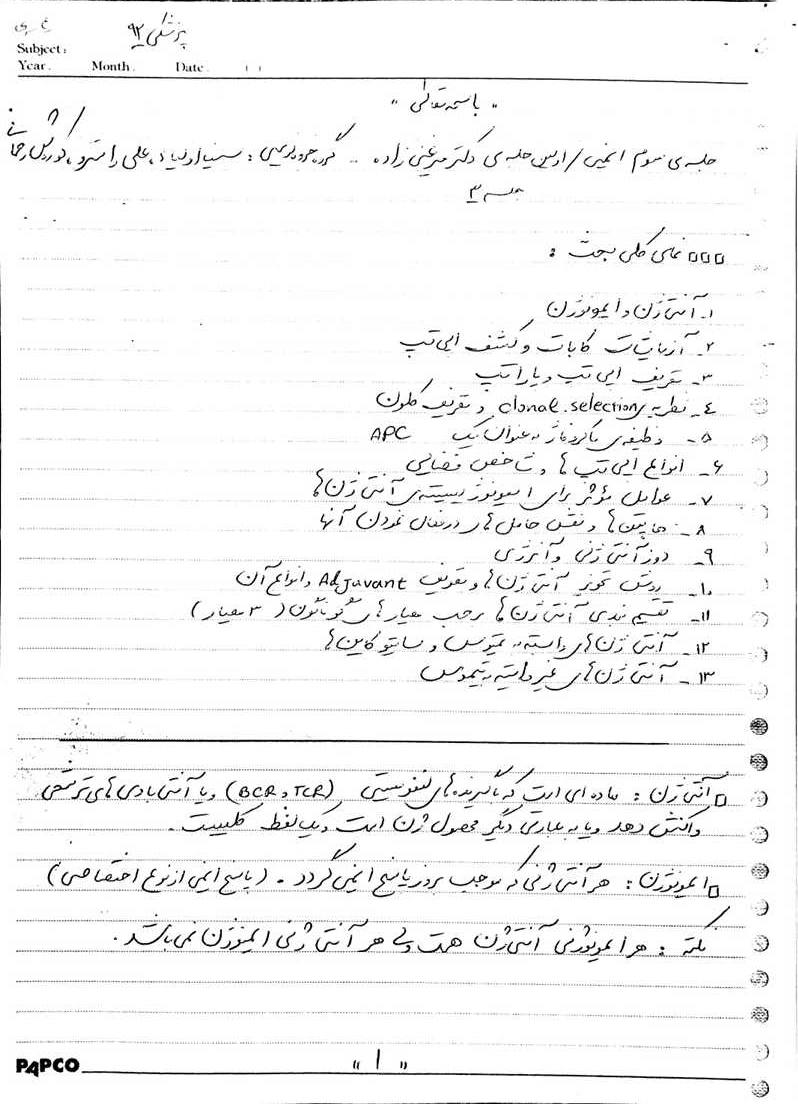 پزشکی ۹۲
Subject:
Year. Month. Date.
"باسمه تعالی"
جلسه ی سوم ایمنی / اولین جلسه ی دکتر میرغنی زاده .. گروه جزوه نویسی: سینا اولیاء، علی راسترو، کوروش رحمانی
جلسه ۳
نمای کلی بحث:
۱. آنتی ژن و ایمونوژن
۲. آزمایشات کابات و کشف اپی تپ
۳- تعریف اپی تپ و پاراتپ
٤- نظریه ی clonal.selection و تعریف کلون
۵- وظیفه ی ماکروفاژ به عنوان یک APC
۶- انواع اپی تپ ها و شاخص فضایی
۷- عوامل مؤثر برای ایمونوژنیسیته ی آنتی ژن ها
۸- هاپتن ها و نقش حامل های در فعال نمودن آنها
۹- دوز آنتی ژنی و آنرژی
۱۰- روش تجویز آنتی ژن ها و تعریف Adjuvant و انواع آن
۱۱- تقسیم بندی آنتی ژن ها برحسب معیارهای گوناگون (۳ معیار)
۱۲- آنتی ژن های وابسته به تیموس و سایتوکاین ها
۱۳- آنتی ژن های غیر وابسته به تیموس
آنتی ژن: ماده ای است که با گیرنده های لنفوسیتی (TCR و BCR) و یا آنتی بادی های ترشحی
واکنش دهد و یا به عبارتی دیگر محصول ژن است و یک لفظ کلیست.
ایمونوژن: هر آنتی ژنی که موجب بروز پاسخ ایمنی گردد. (پاسخ ایمنی از نوع اختصاصی)
نکته: هر ایمونوژنی آنتی ژن هست ولی هر آنتی ژنی ایمنوژن نمی باشد.
PAPCO "۱"